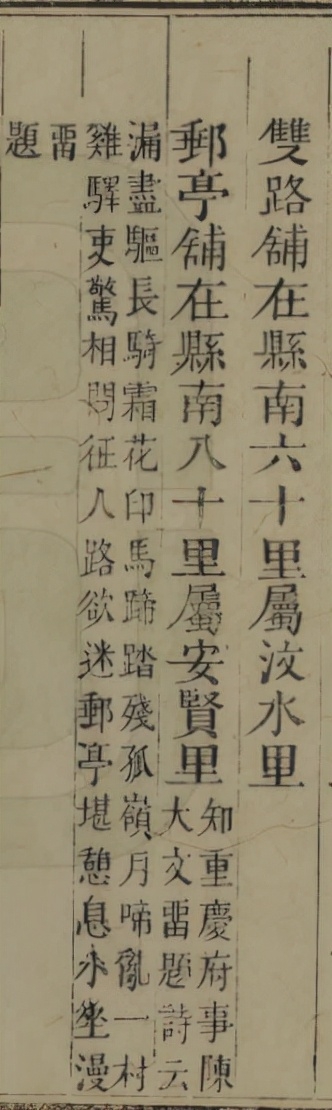 雙路舖在縣南六十里屬汶水里
郵亭舖在縣南八十里屬安賢里
知重慶府事陳
大文畱題詩云
漏盡驅長騎霜花印馬蹄踏殘孤嶺月啼亂一村
雞驛吏驚相問征人路欲迷郵亭堪憩息小坐漫
畱
題